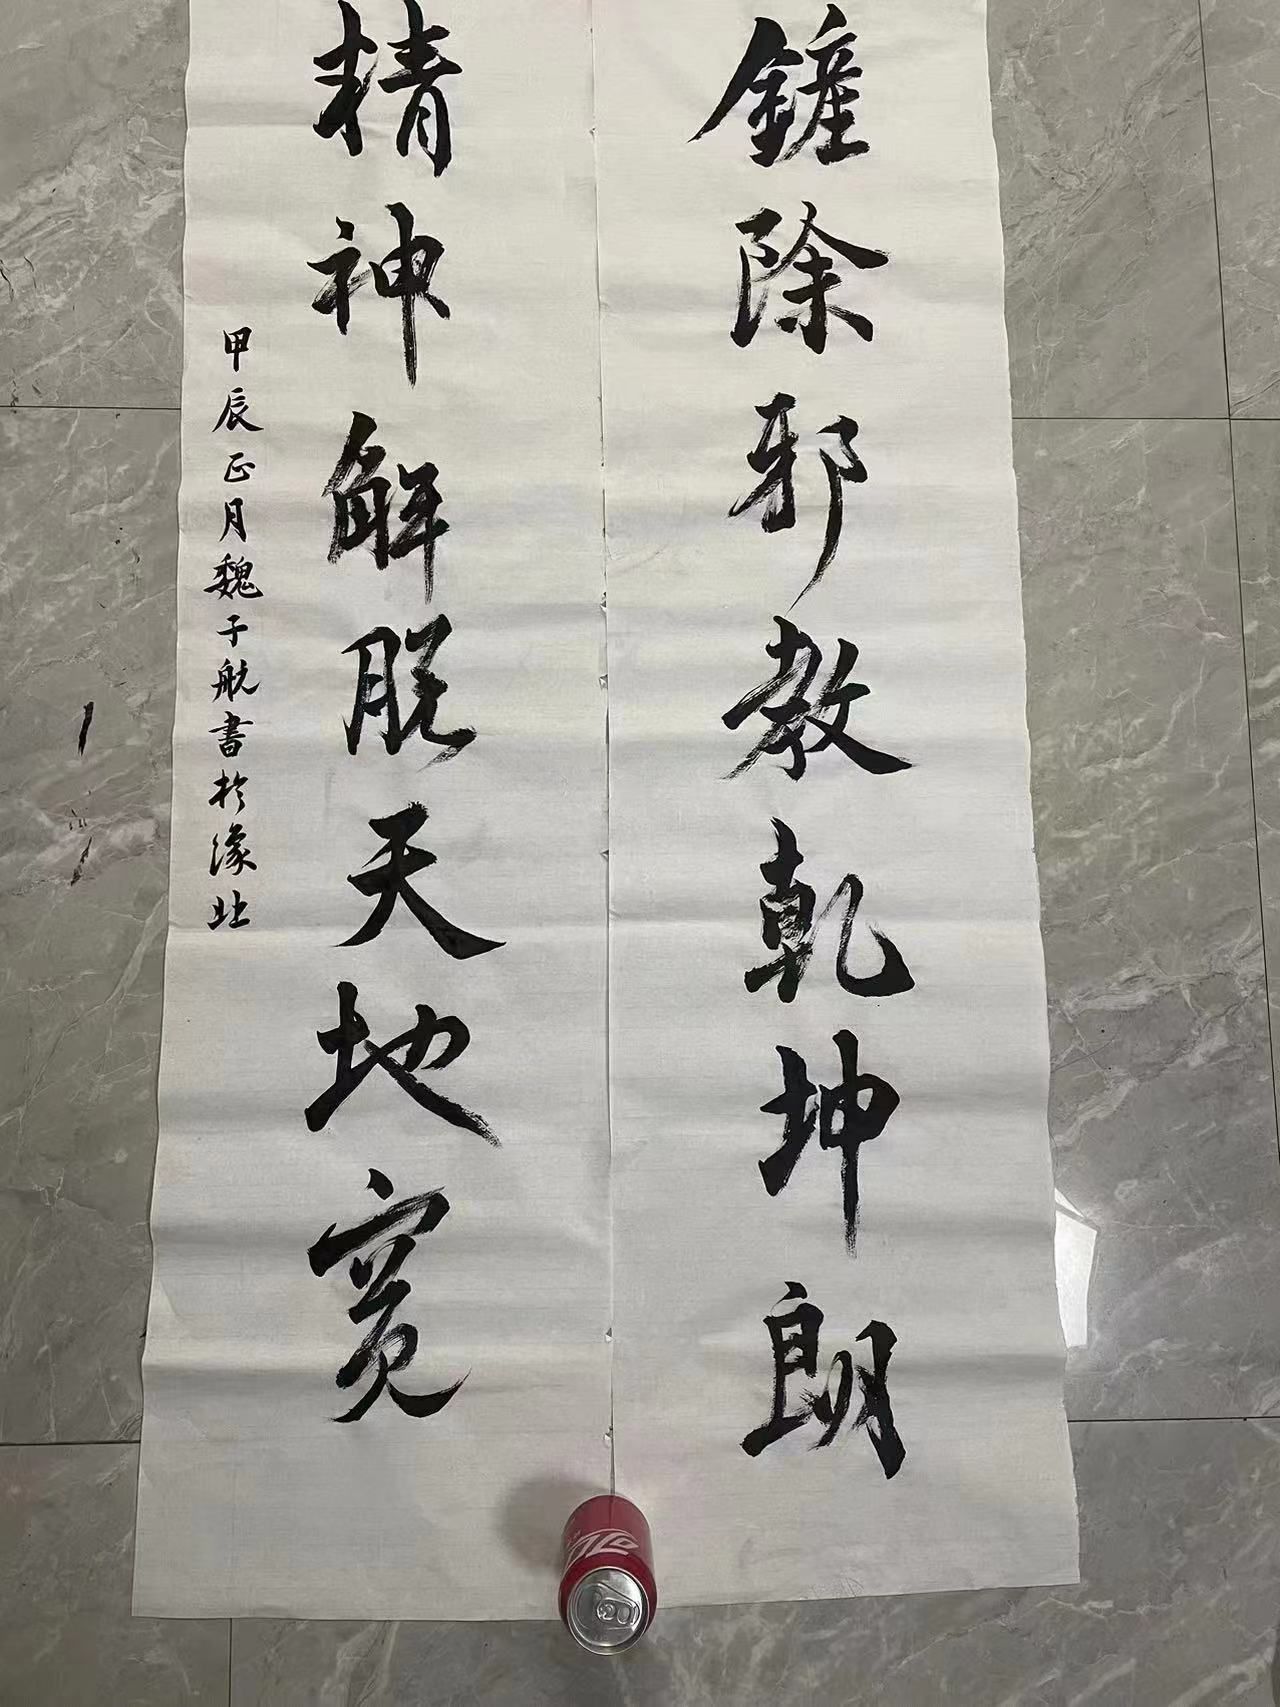 鏟除邪教乾坤朗
精神解脱天地寬
甲辰正月魏子航書於濠北